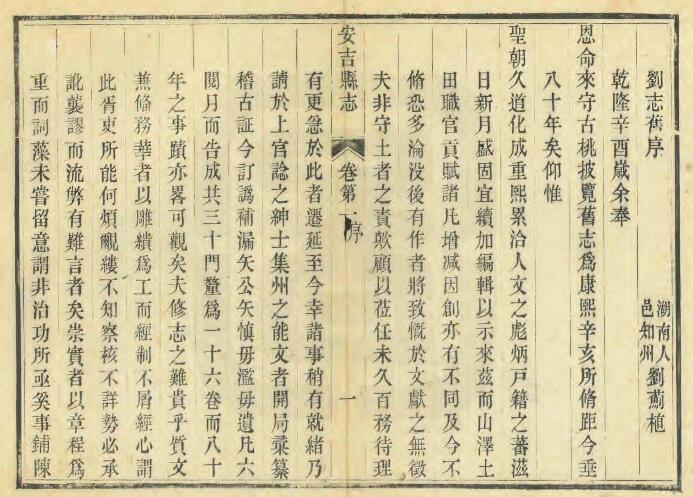 劉志舊序
湖南人
邑知州
劉薊植
乾隆辛酉歲余奉
恩命來守古桃披覽舊志爲康熙辛亥所脩距今垂
八十年矣仰惟
聖朝久道化成重熙累洽人文之彪炳戸籍之蕃滋
日新月盛固宜續加編輯以示來茲而山澤土
田職官貢賦諸凡增减因創亦有不同及今不
脩恐多淪没後有作者將致慨於文獻之無徵
夫非守土者之責歟顧以莅任未久百務待理
安吉縣志
卷第一
序
一
有更急於此者遷延至今幸諸事稍有就緒乃
請於上官諗之紳士集州之能文者開局彚纂
稽古証今訂譌補漏矢公矢慎毋濫毋遺凡六
閲月而告成共三十門釐爲一十六卷而八十
年之事蹟亦畧可觀矣夫修志之難貴乎質文
兼脩務華者以雕繢爲工而經制不屑經心謂
此胥吏所能何煩覼縷不知察核不詳勢必承
訛襲謬而流弊有難言者矣崇實者以章程爲
重而詞藻未嘗留意謂非治功所亟奚事鋪陳